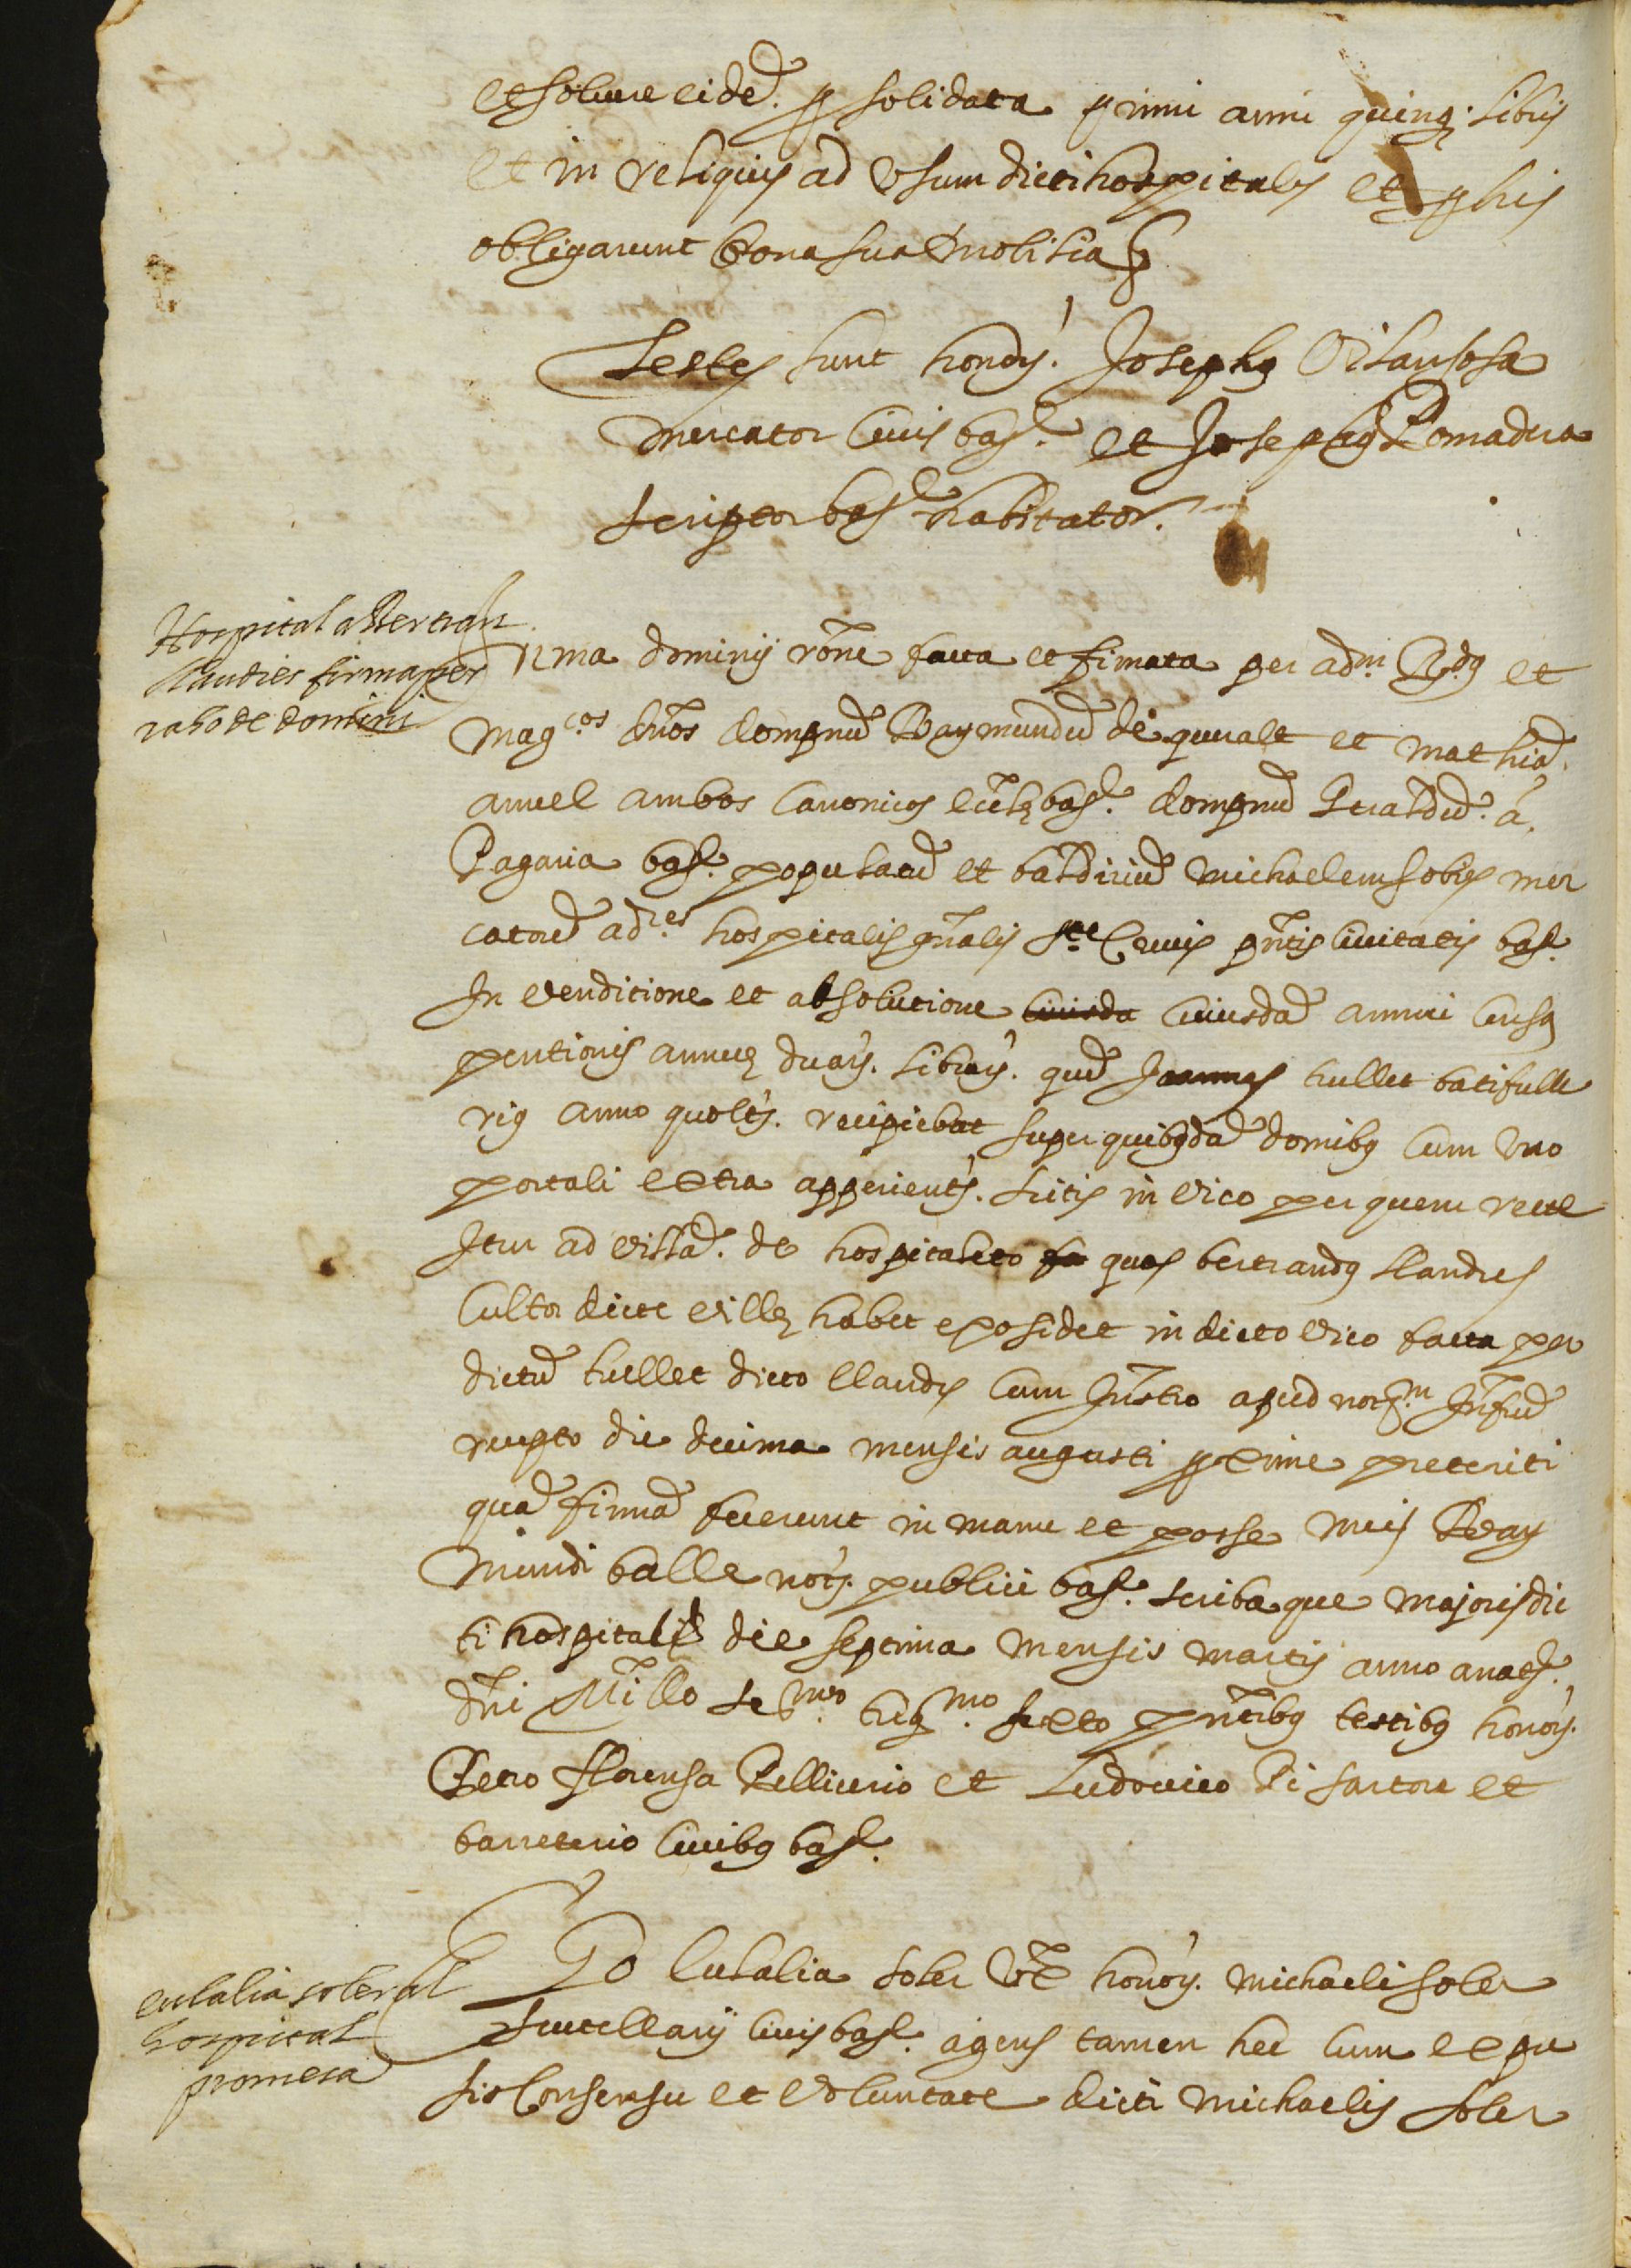 et solvere eidẽ. p solidata primi anni quinq. libris
et in reliquis ad usum dicti hospitalis et p his
obligarunt bona sua mobilia &
Testes sunt honorꝭ. Josephꝯ Vilansosa
mercator civis barꝭ. et Josephꝯ Pomadera
scriptor barꝭ. habitator.
Hospital a Bertran
Llandies firma per
raho de domini
Firma dominij rõne facta et firmata per admͫ. R.dꝯ et
mag.cos dños dompnũ Raymundũ de queralt et mathiã
amell ambos canonicos eccłe barꝭ. dompnũ Geraldũ. á
Pagaria barꝭ. populatũ et baldiriũ michaelem sobies mer
catorẽ ad.res hospitalis gñalis S.te Crucis pñtis civitatis barꝭ.
In venditione et absolutione cuiusda cuiusdã annui censꝯ
pentionis annue duarꝭ. librarꝭ. quẽ Joannes hullet batifulle
riꝯ anno quolꝭ. recipiebat super quibꝯdã domibꝯ cum uno
portali extra apperientꝭ. sitis in vico per quem recte
Itur ad villã. de hospitaleto fa quas bertrandꝯ llandies
cultor dicte ville habet e posidet in dicto vico facta per
dictũ hullet dicto llandꝭ cum Iñstro apud notꝭ.m Iñfrũ
recepto die decima mensis augusti pxime preteriti
quã firmã fecerunt in manu et posse mei Ray
mundi balle notꝭ. publici barꝭ. scriba que majoris dic
ti hospitalis die septima mensis martij anno a natꝭ.
dñi Mĩllo sex.mo trig.mo sexto pñtibꝯ testibꝯ honorꝭ.
Petro florensa Pellicerio et Ludovico Pi sartore et
barreterio civibꝯ barꝭ.
eulalia soler al
hospital
promesa
Ego Eulalia soler ux̃ honorꝭ. michaeli soler
scutellarij civis barꝭ. agens tamen hec cum expre
sio consensu et voluntate dicti michaelis soler